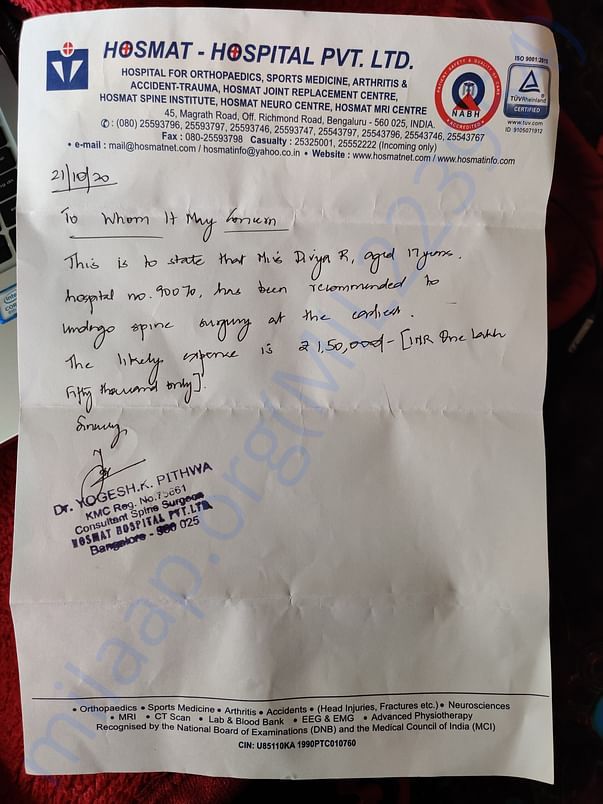 HOSMAT - HOSPITAL PVT. LTD.
HOSPITAL FOR ORTHOPAEDICS, SPORTS MEDICINE, ARTHRITIS &
ACCIDENT-TRAUMA, HOSMAT JOINT REPLACEMENT CENTRE,
HOSMAT SPINE INSTITUTE, HOSMAT NEURO CENTRE, HOSMAT MRI CENTRE
45, Magrath Road, Off. Richmond Road, Bengaluru - 560 025, INDIA,
✆ : (080) 25593796, 25593797, 25593746, 25593747, 25543797, 25543796, 25543746, 25543767
Fax : 080-25593798 Casualty : 25325001, 25552222 (Incoming only)
• e-mail : mail@hosmatnet.com / hosmatinfo@yahoo.co.in • Website : www.hosmatnet.com / www.hosmatinfo.com
PATIENT SAFETY & QUALITY OF CARE
NABH
ACCREDITED
ISO 9001:2015
TÜVRheinland
CERTIFIED
www.tuv.com
ID 9105071912
21/10/20
To Whom It May Concern
This is to state that Miss Divya R, aged 17 years.
hospital no. 90070, has been recommended to
undergo spine surgery at the earliest.
The likely expense is ₹ 1,50,000/- [INR One Lakh
Fifty thousand only].
Dr. YOGESH.K. PITHWA
KMC Reg. No.
Consultant Spine Surgeon
HOSMAT HOSPITAL PVT.LTD.
Bangalore - 560 025
milaap.org
• Orthopaedics • Sports Medicine • Arthritis • Accidents • (Head Injuries, Fractures etc.) • Neurosciences
• MRI • CT Scan • Lab & Blood Bank • EEG & EMG • Advanced Physiotherapy
Recognised by the National Board of Examinations (DNB) and the Medical Council of India (MCI)
CIN: U85110KA 1990PTC010760